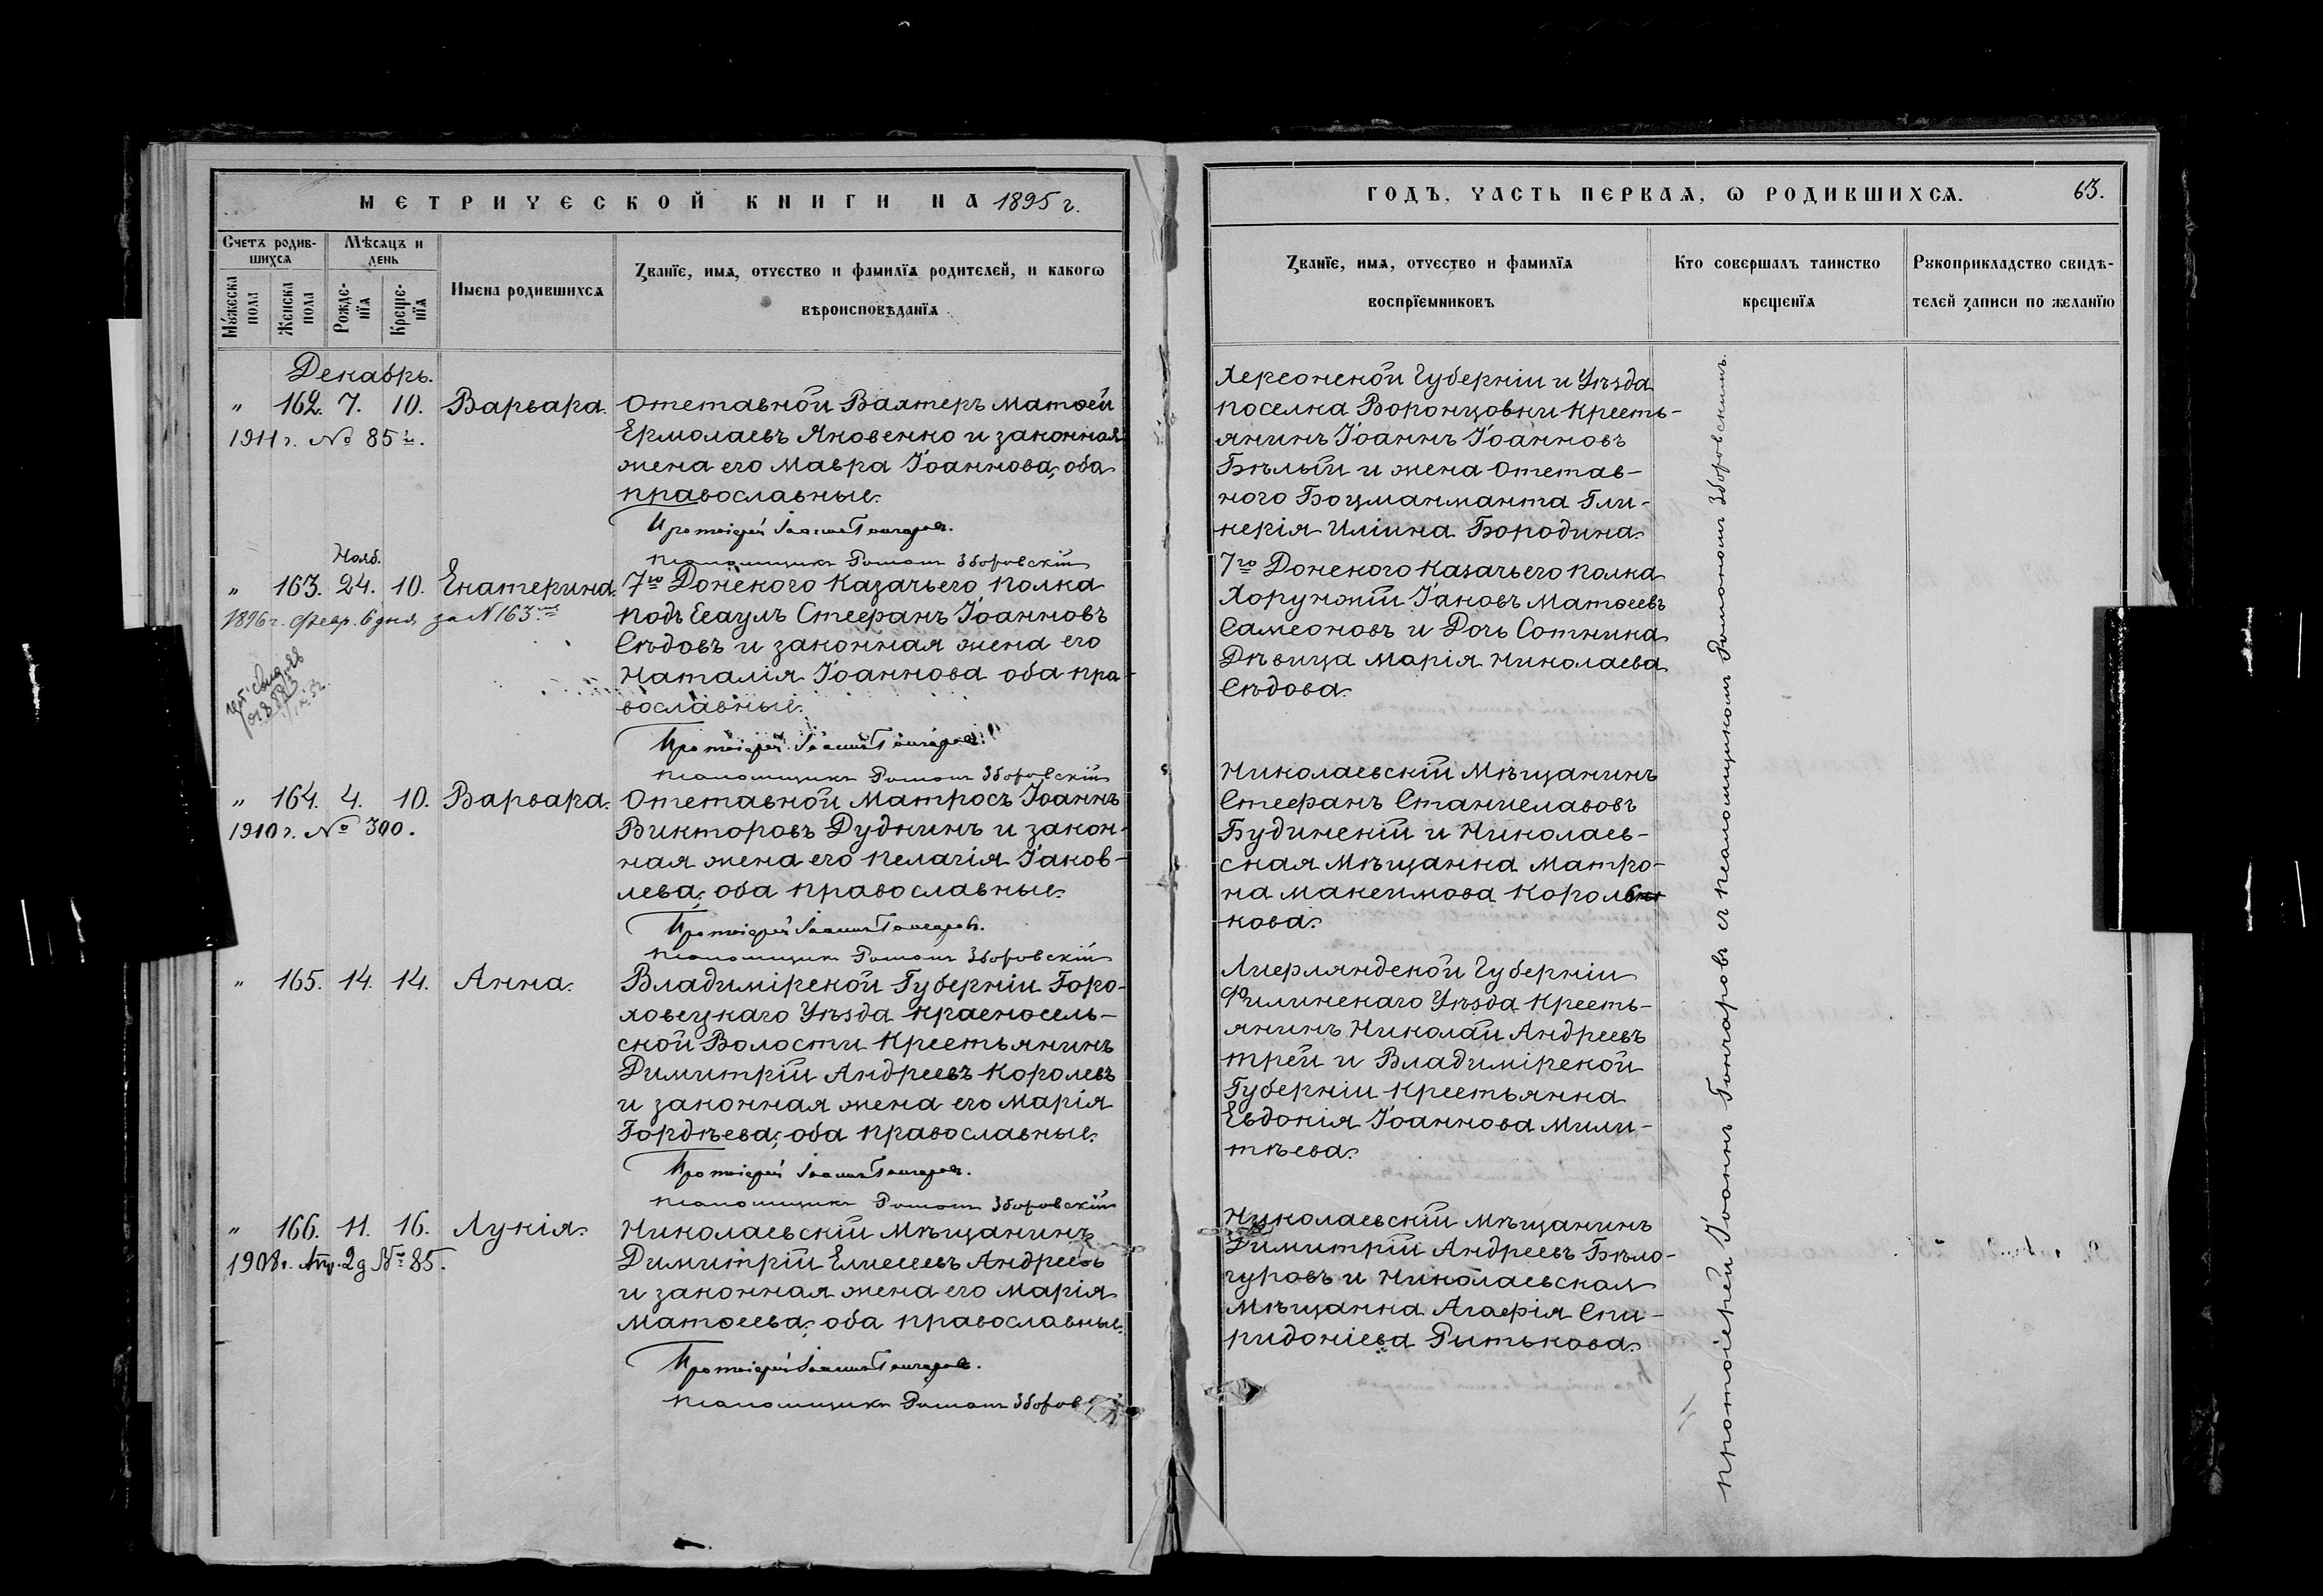 МЕТРИЧЕСКОЙ КНИГИ НА 1895 г.
Счетъ родив-
шихсѧ
Мѣсѧцъ и
день
Мꙋжеска
пола
Женска
пола
Рожде-
нїѧ
Креще-
нїѧ
Имена родившихсѧ
Званїе, имѧ, отчество и фамилїѧ родителей, и какогѡ
вѣроисповѣданїѧ
Декабрь.
" 162. 7. 10. Варвара. Отставной Вахтеръ Матѳей
1911 г. № 85й. Ермолаевъ Яковенко и законная
жена его Мавра Іоаннова, оба
православные.
Протоіерей Іоаннъ Гончаровъ.
Псаломщикъ Романъ Зборовскій
Нояб.
" 163. 24. 10. Екатерина. 7го Донскаго Казачьего полка
1896 г. Февр. 6 дня за N 163 Подъ Есаулъ Стефанъ Іоанновъ
Сѣдовъ и законная жена его
Наталія Іоаннова оба пра-
вославные.
Протоіерей Іоаннъ Гончаровъ.
Псаломщикъ Романъ Зборовскій
" 164. 4. 10. Варвара. Отставной Матросъ Іоаннъ
1910 г. № 300. Викторовъ Дудкинъ и закон-
ная жена его Пелагія Іаков-
лева, оба православные.
Протоіерей Іоаннъ Гончаровъ.
Псаломщикъ Романъ Зборовскій
" 165. 14. 14. Анна. Владимірской Губерніи Горо-
ховецкаго Уѣзда Красносель-
ской Волости Крестьянинъ
Димитрій Андреевъ Королевъ
и законная жена его Марія
Гордѣева, оба православные.
Протоіерей Іоаннъ Гончаровъ.
Псаломщикъ Романъ Зборовскій
" 166. 11. 16. Лукія. Николаевскій Мѣщанинъ
1908 г. Апр. 2 д № 85. Димитрій Елисеевъ Андреевъ
и законная жена его Марія
Матѳеева, оба православные.
Протоіерей Іоаннъ Гончаровъ.
Псаломщикъ Романъ Зборов
ГОДЪ, ЧАСТЬ ПЕРВАѦ, Ѡ РОДИВШИХСѦ. 63.
Званїе, имѧ, отчество и фамилїѧ
воспрїемниковъ
Кто совершалъ таинство
крещенїѧ
Рꙋкоприкладство свидѣ-
телей записи по желанїю
Херсонской Губерніи и Уѣзда
поселка Воронцовки Кресть-
янинъ Іоаннъ Іоанновъ
Бѣлый и жена Отстав-
ного Боцманманта Гли-
керія Иліина Бородина.
7го Донскаго Казачьего полка
Хорунжій Іаковъ Матѳеевъ
Самсоновъ и Дочь Сотника
Дѣвица Марія Николаева
Сѣдова.
Николаевскій Мѣщанинъ
Стефанъ Станиславовъ
Будинскій и Николаев-
ская Мѣщанка Матро-
на Максимова Король
кова.
Лифляндской Губерніи
Филинскаго Уѣзда Кресть-
янинъ Николай Андреевъ
Трей и Владимірской
Губерніи Крестьянка
Евдокія Іоаннова Мили-
тѣева.
Николаевскій Мѣщанинъ
Димитрій Андреевъ Бѣло-
гуровъ и Николаевская
Мѣщанка Агафія Спи-
ридоніева Ритькова.
Протоіерей Іоаннъ Гончаровъ съ псаломщикомъ Романомъ Зборовскимъ.